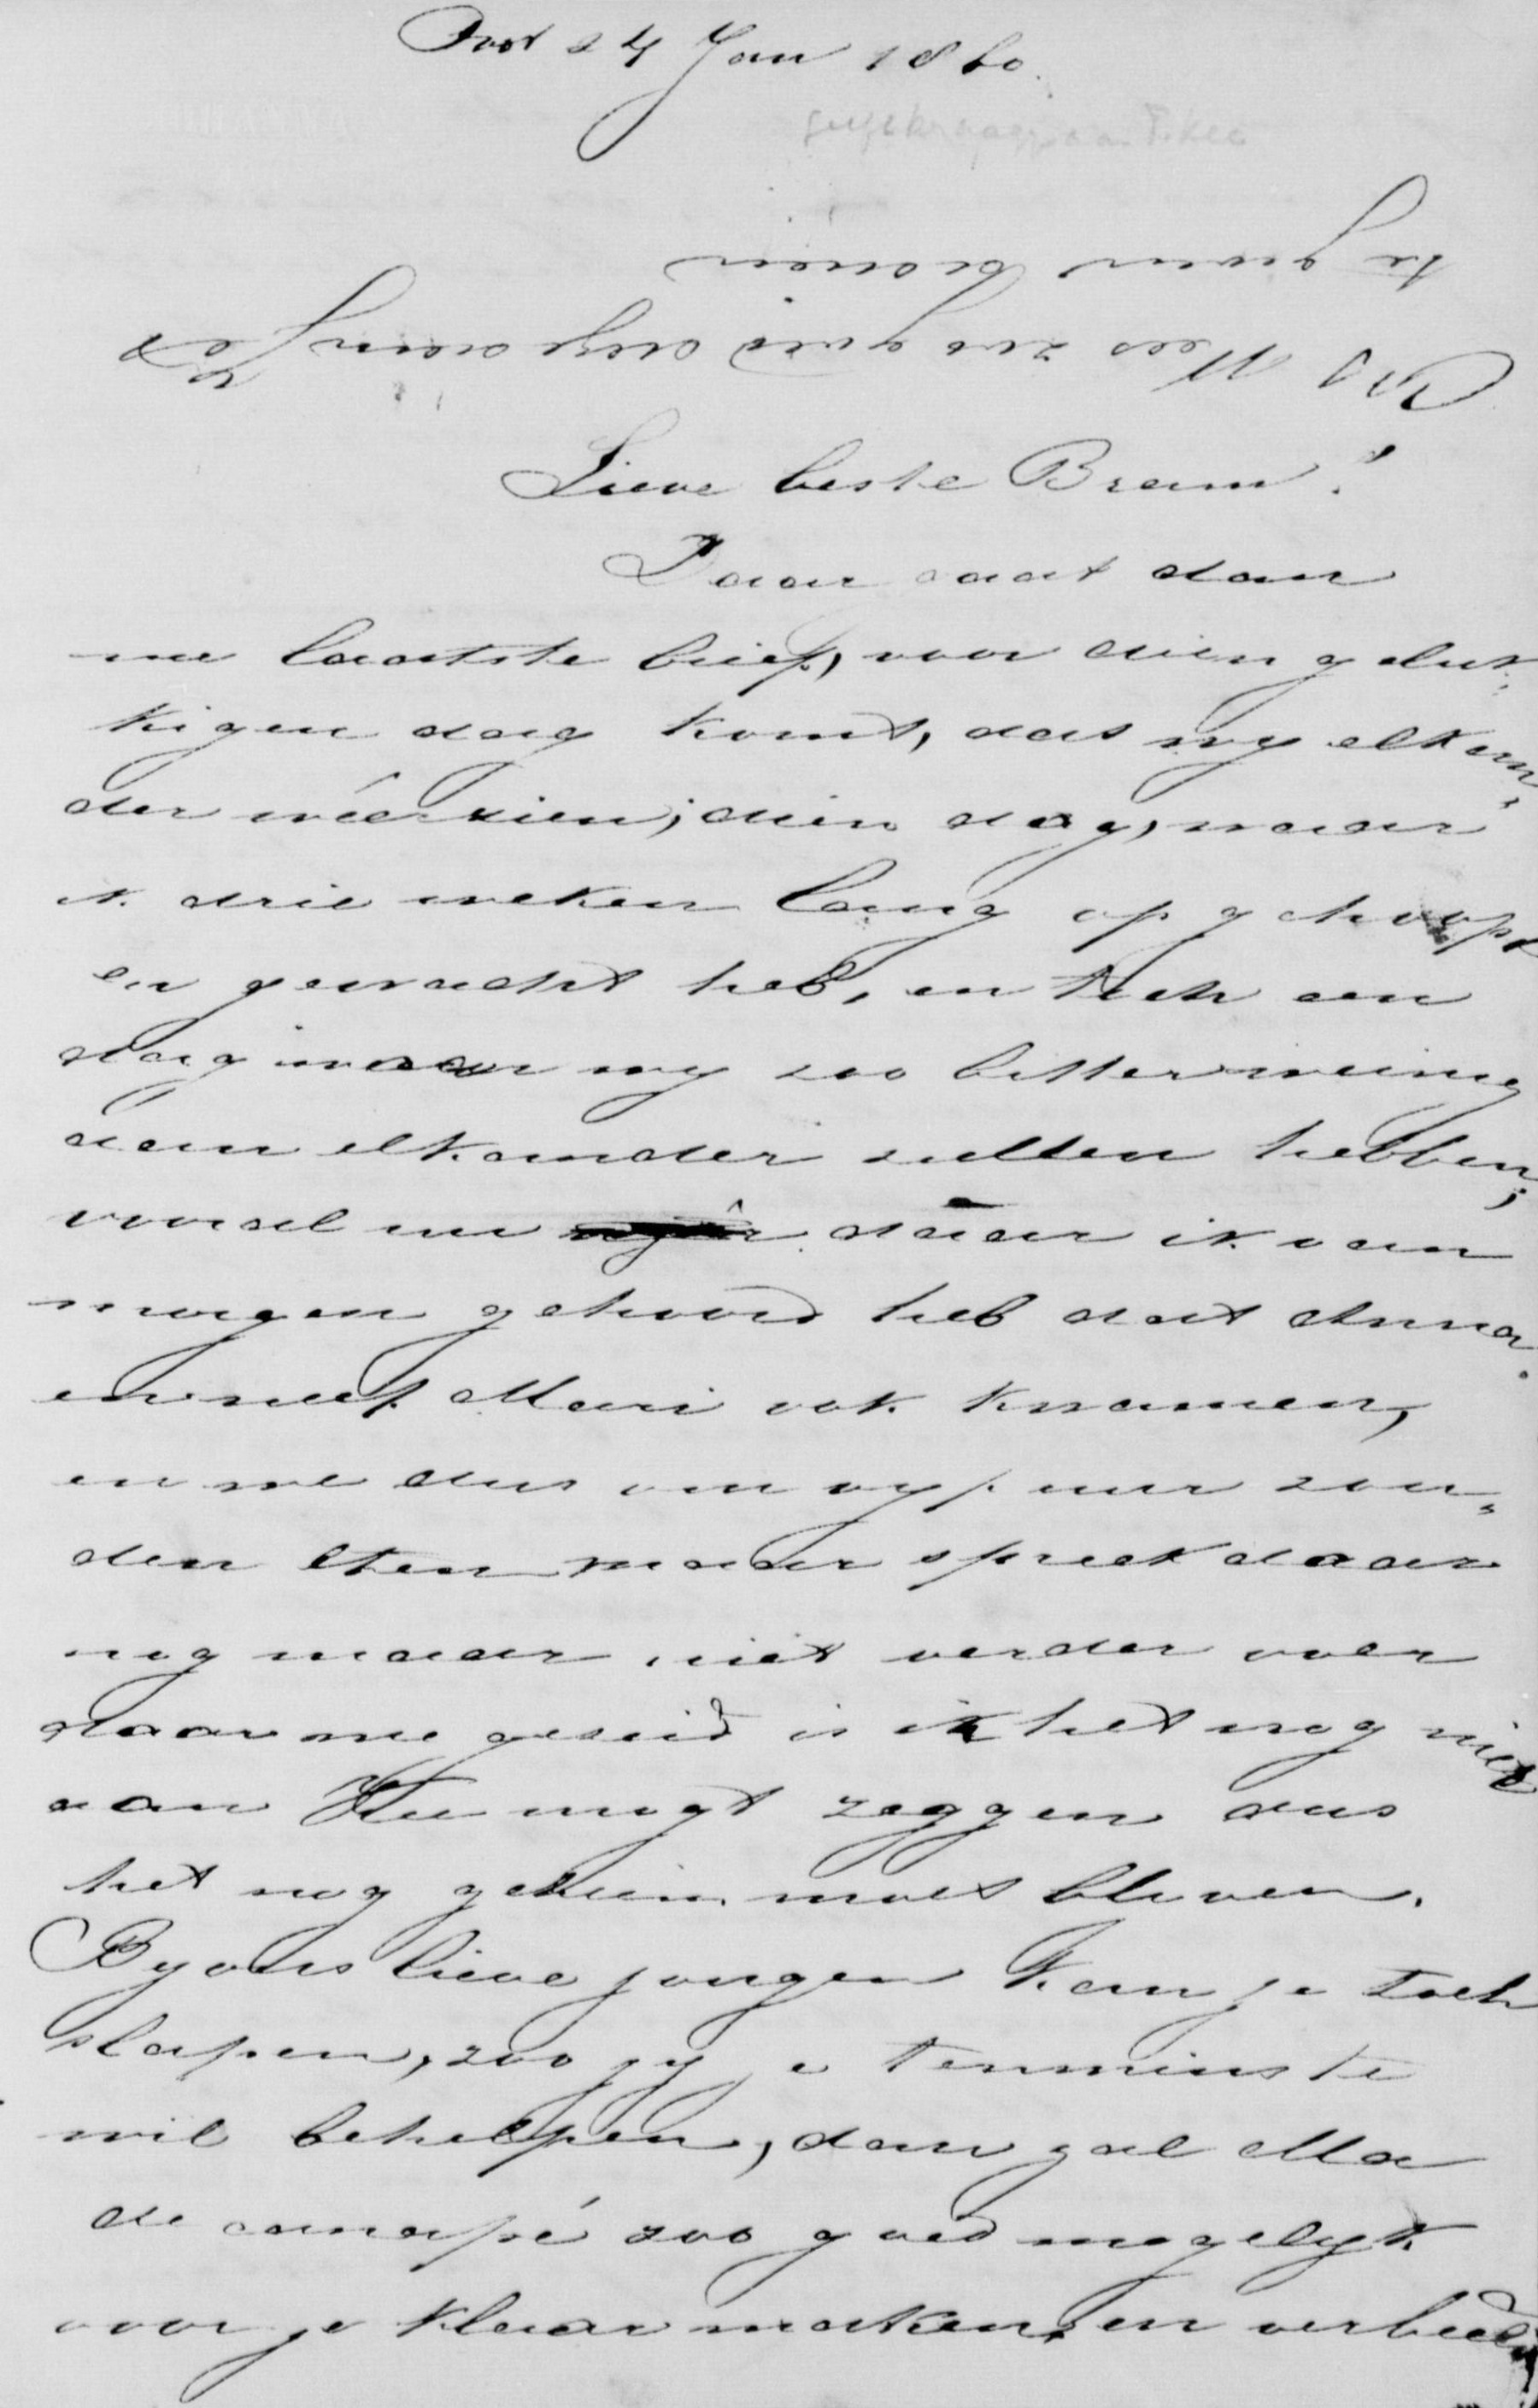 24 Jan 1860.
PS Wees zoo goed deze aan
te geven
Lieve beste Bram!
Daar gaat dan
me laatste brief, voor dien geluk,,
kigen dag komt, dat wy elkan,,
der wéérzien; dien dag, waar
ik drie weken lang op gehoopt
en gewacht heb, en toch een
dag waar wy zoo bitter weinig
aan elkander zullen hebben,
vooral nu daar ik van
morgen gehoord heb dat Anna
en neef Mari ook kwamen,
en we dus om vyf uur zou,,
den eten maar spreek daar
nog maar niet verder over
daar me gezeid is ik het nog niet
aan mogt zeggen dus
het nog geheim moet bleven.
By ons lieve jongen kan je toch
slapen, zoo jy je tenminste
wil behelpen, dan zal Ma
de canapé zoo goed mogelyk
voor je klaar maken, en verbeeld